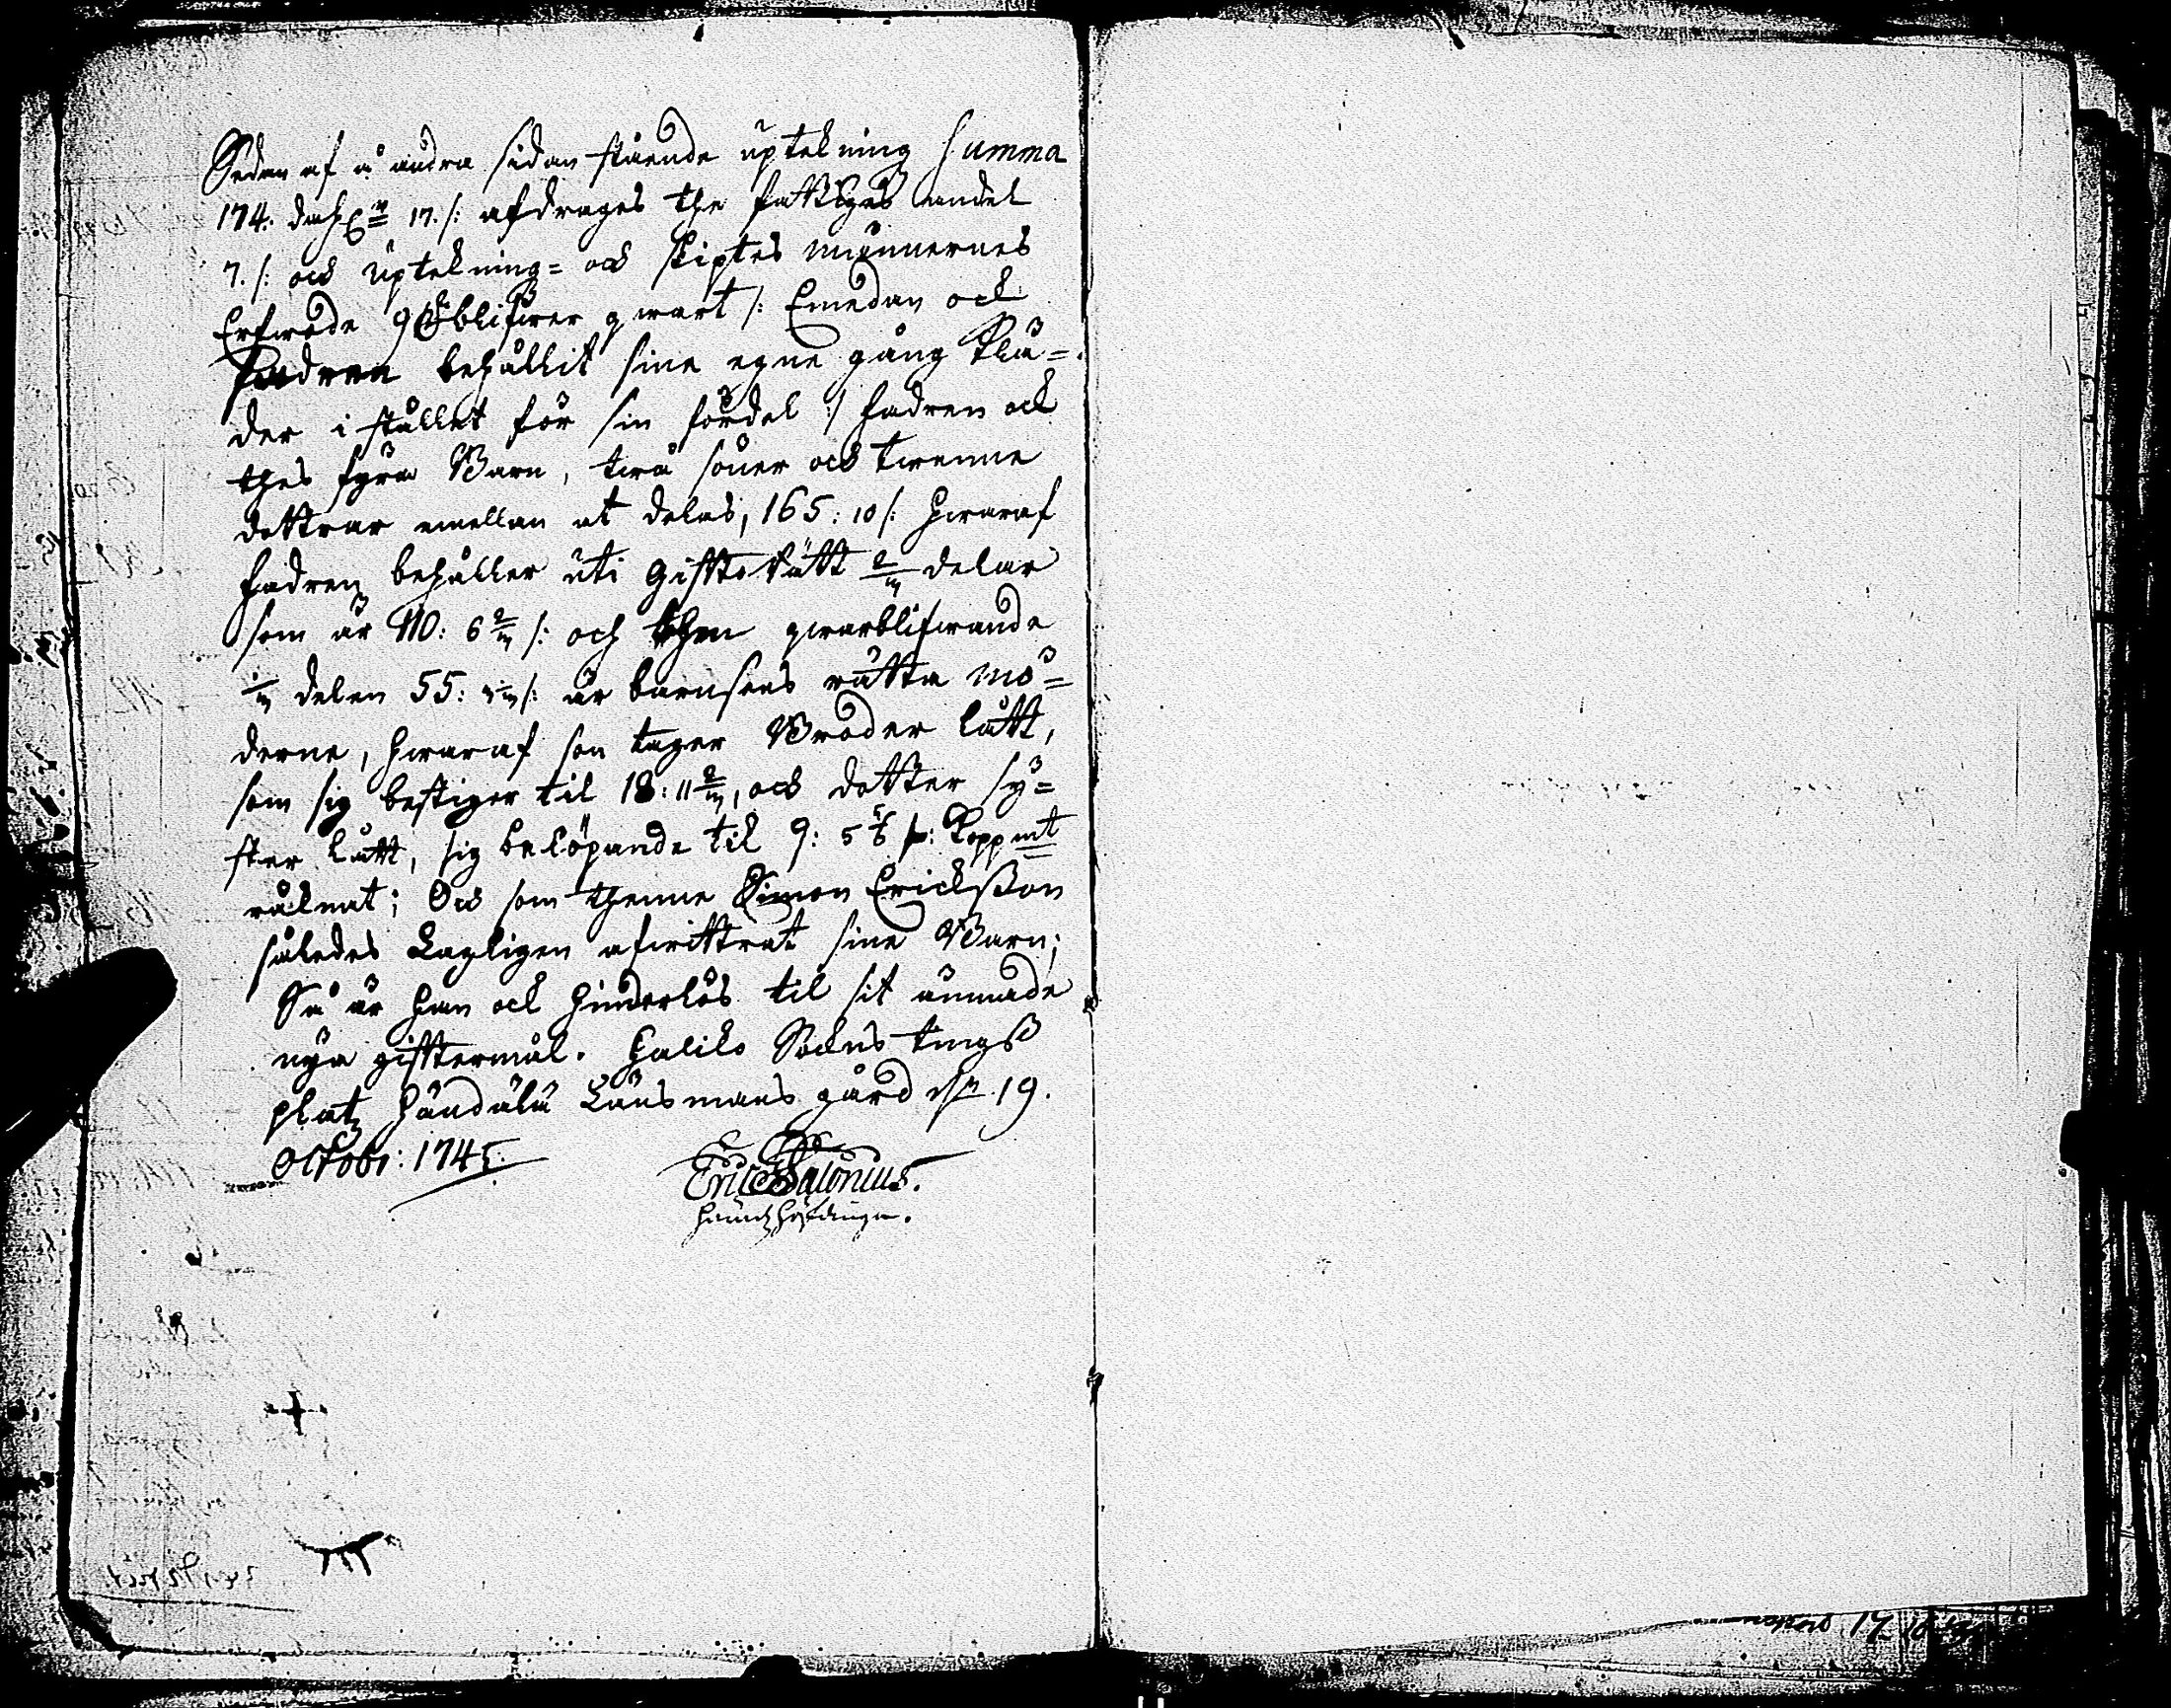 Sedan af å andra sidan stående uptekning Summa
174. dal. K.mt 17./: afdrages the fattiges andel
7./: och uptekning= och skiptes männernes
Erfwode 9 blifwer qwart /: Emedan ock
fadren behållit sine egne gång klä=
der i stället för sin fördel :/ fadren ock
thes fyra Barn, twå söner och twenne
dottrar emellan at delas, 165: 10/: hwaraf
fadren behåller uti Gifftorätt 2/m delar
som är 110: 6 2/m /: och then qwarblifwande
1/m delen 55: 3 1/m /: är barnsens rätta mö=
derne, hwaraf son tager Broder lått,
som sig bestiger til 18: 11 2/m, och dotter sy=
ster lått, sig belöpande til 9: 5 5/6 /: Koppmt
räknat; Och som thenne Simon Ericksson
således Lagligen afwittrat sine Barn;
Så är han ock hinderlös til sit ämnade
nya gifftermål. Haliko Sokns tings
platz Händälä Länsmans gård d. 19.
Octobr: 1745.
Eric Salonius.
Häradzhöfdinge.